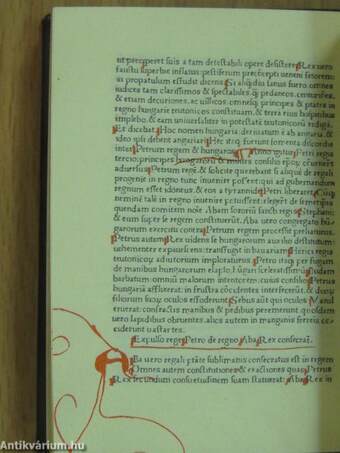 ut preciperet suis a tam detestabili opere desistere Rex uero
fastu superbie inflatus: pestiferum precepti ueneni fetorem
in propatulum effudit dicens Si aliquãdiu sanus fuero omnes
iudices tam clarissimos & spectabiles ꝗ pedaneos. centuriões.
& etiam decuriones. ac uillicos. omnesꝗ; principes & ptãtes in
regno hungarie teutonicos constituam. & terrã eius hospitibus
implebo. & eam uniuersaliter in potestatẽ teutonicorũ redigã.
Et dicebat: Hoc nomen hungaria: deriuatum ẽ ab angaria. &
ideo ipsi debent angariari Hec itaꝗ; fuerunt fomenta discordie
inter Petrum regem & hungaros. Anno igitur Petri regis
tercio: principes hungarorũ & milites consilio
aduersus Petrum regẽ & solicite querebant si aliquẽ de regali
progenie in regno tunc inuenire possent: qui ad gubernandum
regnum esset idoneus. & eos a tyrannide Petri liberaret. Cumꝗ;
neminem talem in regno inuenire possent: elegerũt de semetipsis
quendam comitem nomine Aba sororium sancti regis Stephani
& eum super se regem constituerũt. Aba uero congregato hun-
garorum: contra Petrum regem processit preliaturus.
Petrus autem Rex uidens se hungarorum auxilio destitutum:
uehementer expauescens: transfugit in bauariam: Henrici regis
teutonicorũ adiutorium imploraturus Petro itaꝗ; per fugam
de manibus hungarorum elapto. Hugari sceleratissimũ Budam
barbatum: omniũ malorum intentorem: cuius consilio Petrus
hungariã afflixerat: in frustra cõcidentes interfecerũt. & duorum
filiorum suoꝶ oculos effoderunt Sebus aũt qui oculos Vazul
eruerat: confractis manibus & pedibus peremerunt. quosdam
uero lapidibus obruentes. alios autem in manganis ferreis ce-
ciderunt uastantes.
Expulso rege Petro de regno Aba Rex consecraṫ.
Aba uero regali ptãte sublimatus consecratus est in regem
Omnes autem constitutiones & exactiones quas Petrus
Rex secundum consuetudinem suam statuerat: Aba Rex in
Antikvárium.hu